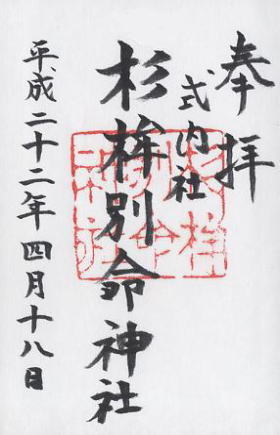 奉拝
式内社
杉桙別命神社
平成二十二年四月十八日